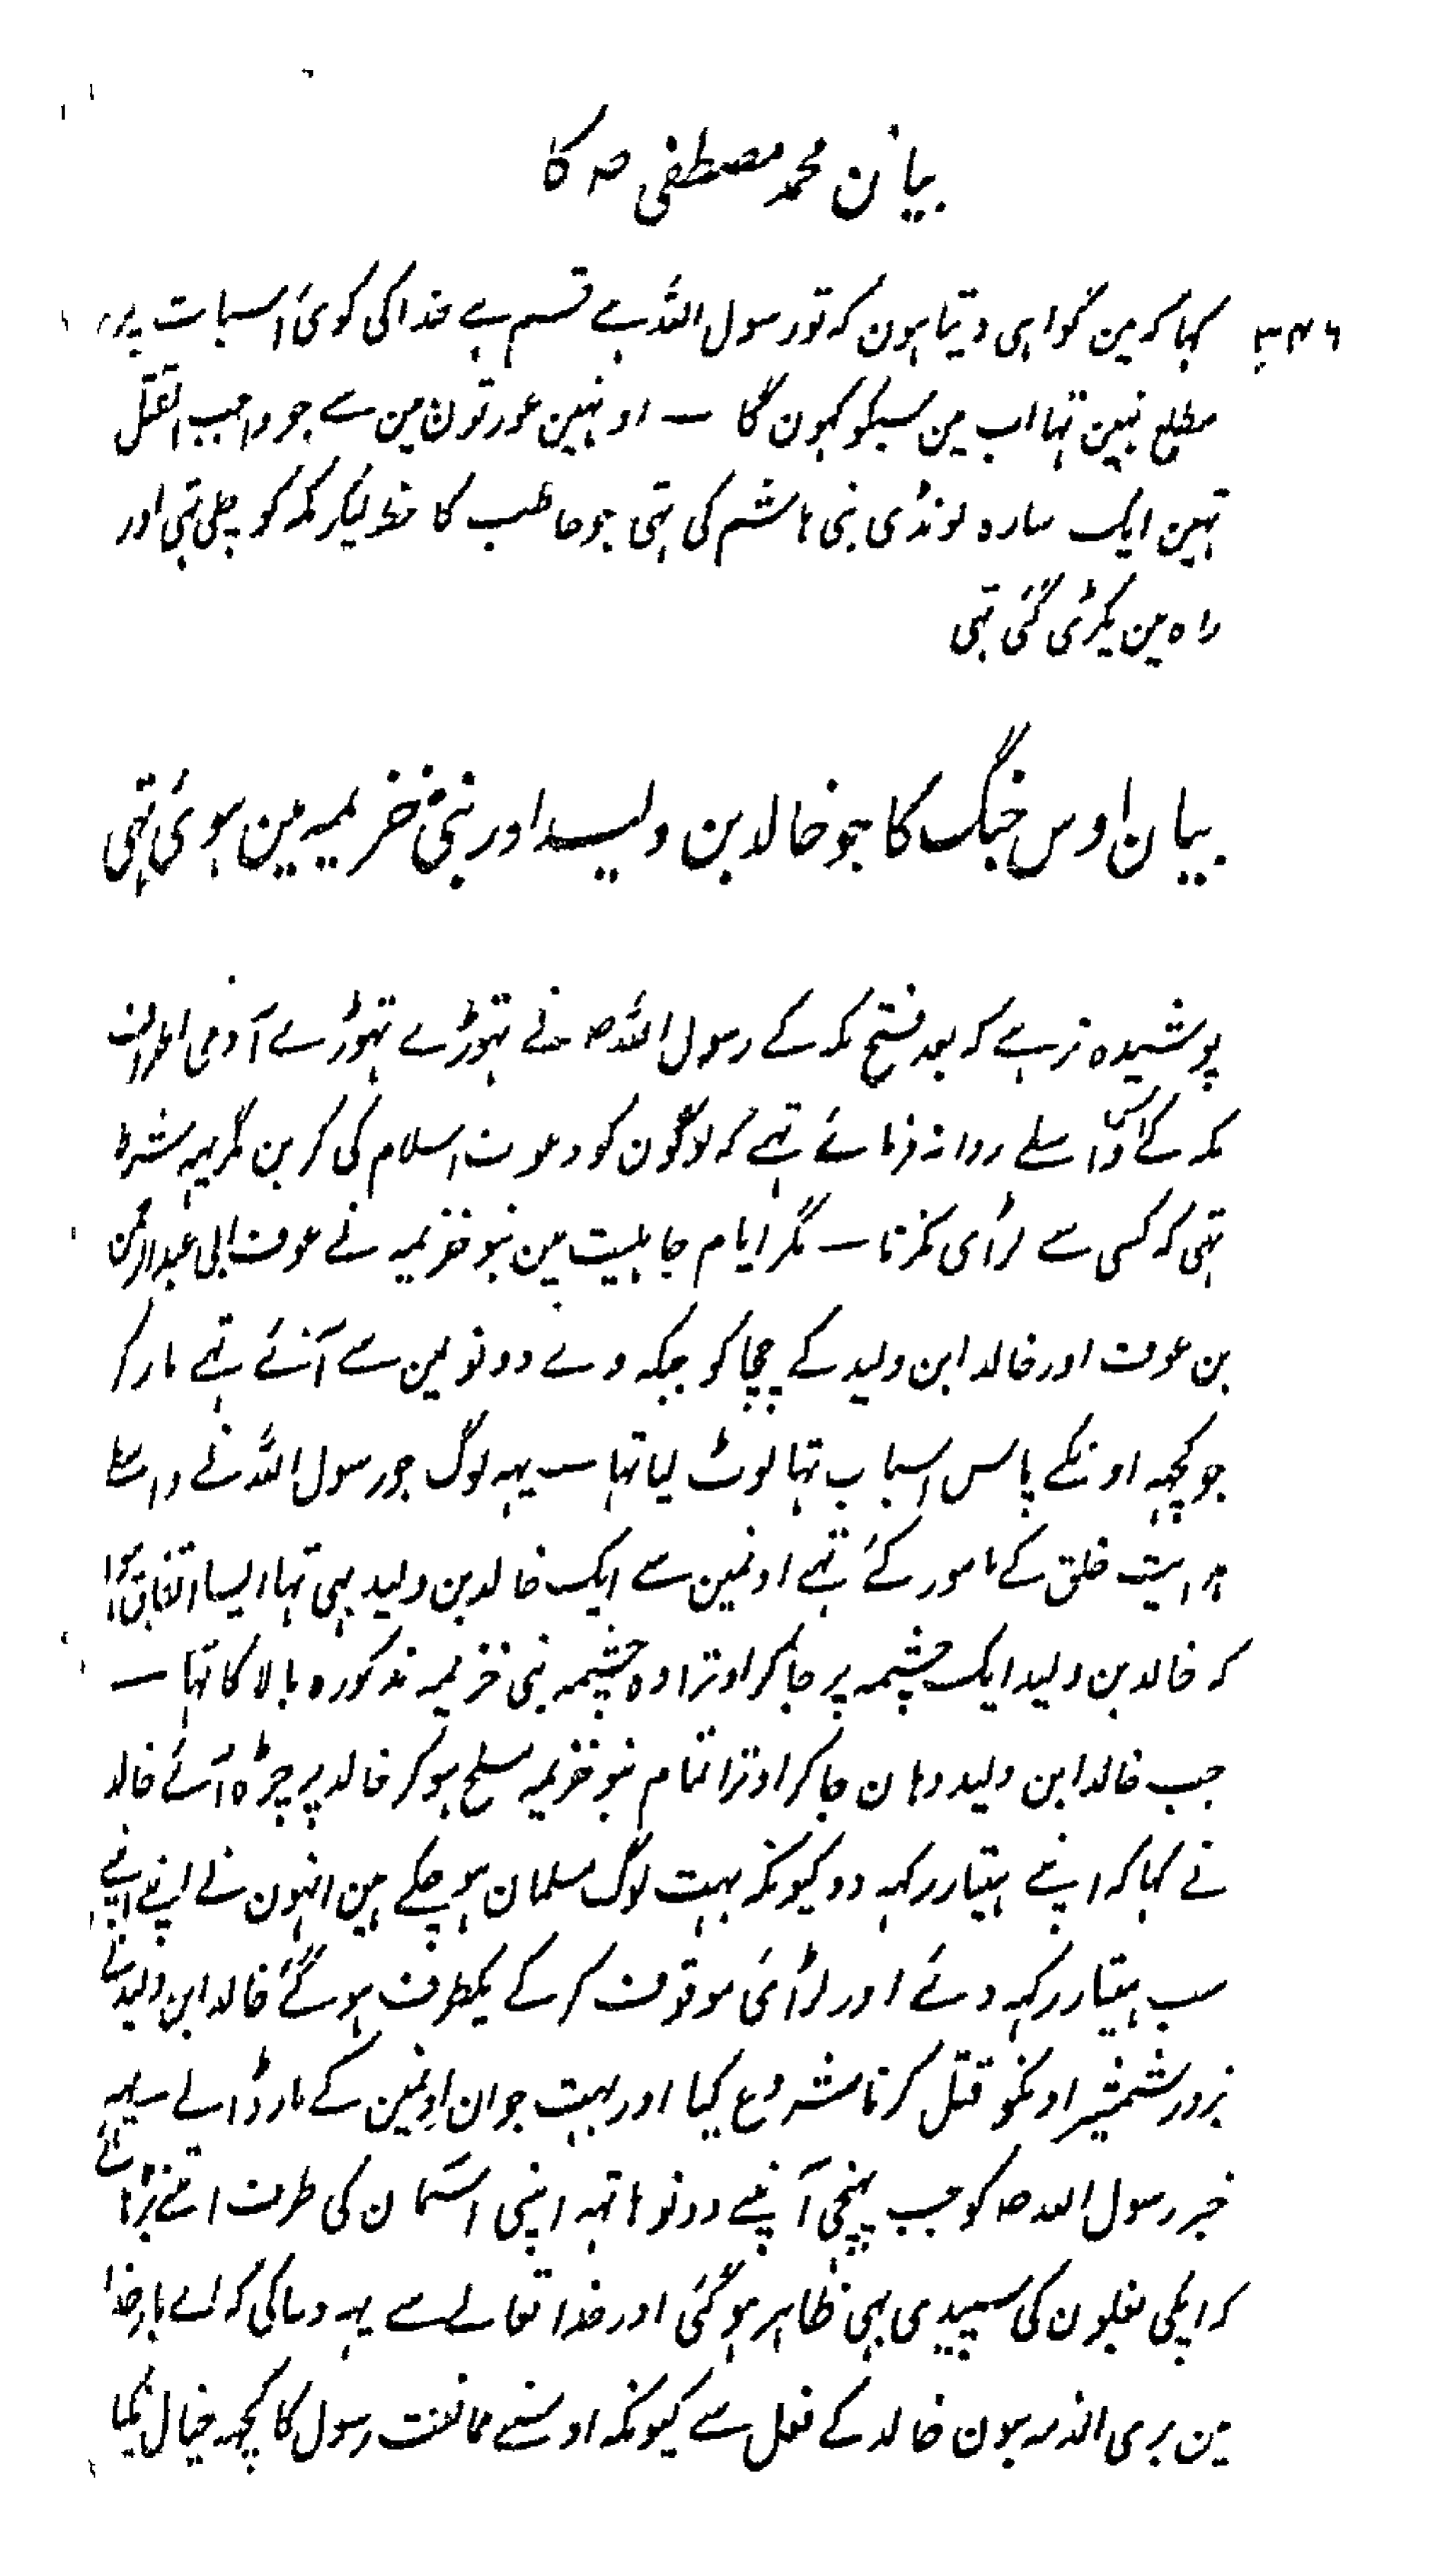 بیان محمد مصطفی ص کا
کہا کہ مین گواہی دیتا ہون کہ تو رسول اللہ ہے قسم ہے خدا کی کوئ اسبات پر
مطلع نہین تہا اب مین سبکو کہون گا — اونہین عورتون مین سے جو واجب القتل
تہین ایک سارہ لونڈی بنی ہاشم کی تہی جو حاطب کا خط لیکر مکہ کو چلی تہی اور
راہ مین پکڑی گئی تہی
بیان اوس جنگ کا جو خالد بن ولید اور بنی خزیمیہ مین ہوئ تہی
پوشیدہ نرہے کہ بعد فتح مکہ کے رسول اللہ ص نے تہوڑے تہوڑے آدمی اطراف
مکہ کے اس واسطے روانہ فرمائے تہے کہ لوگون کو دعوت اسلام کی کرین مگر یہہ شرط
تہی کہ کسی سے لڑائی نکرنا — مگر ایام جاہلیت مین بنو خزیمہ نے عوف ابی عبد الرحمن
بن عوف اور خالد ابن ولید کے چچا کو جبکہ وے دونو یمن سے آئے تہے مار کر
جو کچہہ اونکے پاس اسباب تہا لوٹ لیا تہا — یہہ لوگ جو رسول اللہ نے واسطے
ہدایت خلق کے مامور کئے تہے اونمین سے ایک خالد بن ولید بہی تہا ایسا اتفاق ہوا
کہ خالد بن ولید ایک چشیمہ پر جا کر اوترا وہ چشیمہ بنی خزیمہ مذکورہ بالا کا تہا —
جب خالد ابن ولید وہان جا کر اوترا تمام بنو خزیمہ مسلح ہو کر خالد پر چڑہ آئے خالد
نے کہا کہ اپنے ہتیار رکہہ دو کیونکہ بہت لوگ مسلمان ہو چکے ہین انہون نے اپنے اپنے
سب ہتیار رکہہ دئے اور لڑائی موقوف کر کے یکطرف ہو گئے خالد ابن ولید نے
بزور شمشیر اونکو قتل کرنا شروع کیا اور بہت جوان اونمین کے مار ڈالے — یہہ
خبر رسول اللہ ص کو جب پہنچی آپنے دونو ہاتہہ اپنی اسمان کی طرف اتنے بڑہائے
کہ اپکی بغلون کی سپیدی بہی ظاہر ہو گئی اور خدا تعالے سے یہہ دعا کی کہ اے بار خدا
مین بری الذمہ ہون خالد کے فعل سے کیونکہ اوسنے ممانعت رسول کا کچہہ خیال نکیا